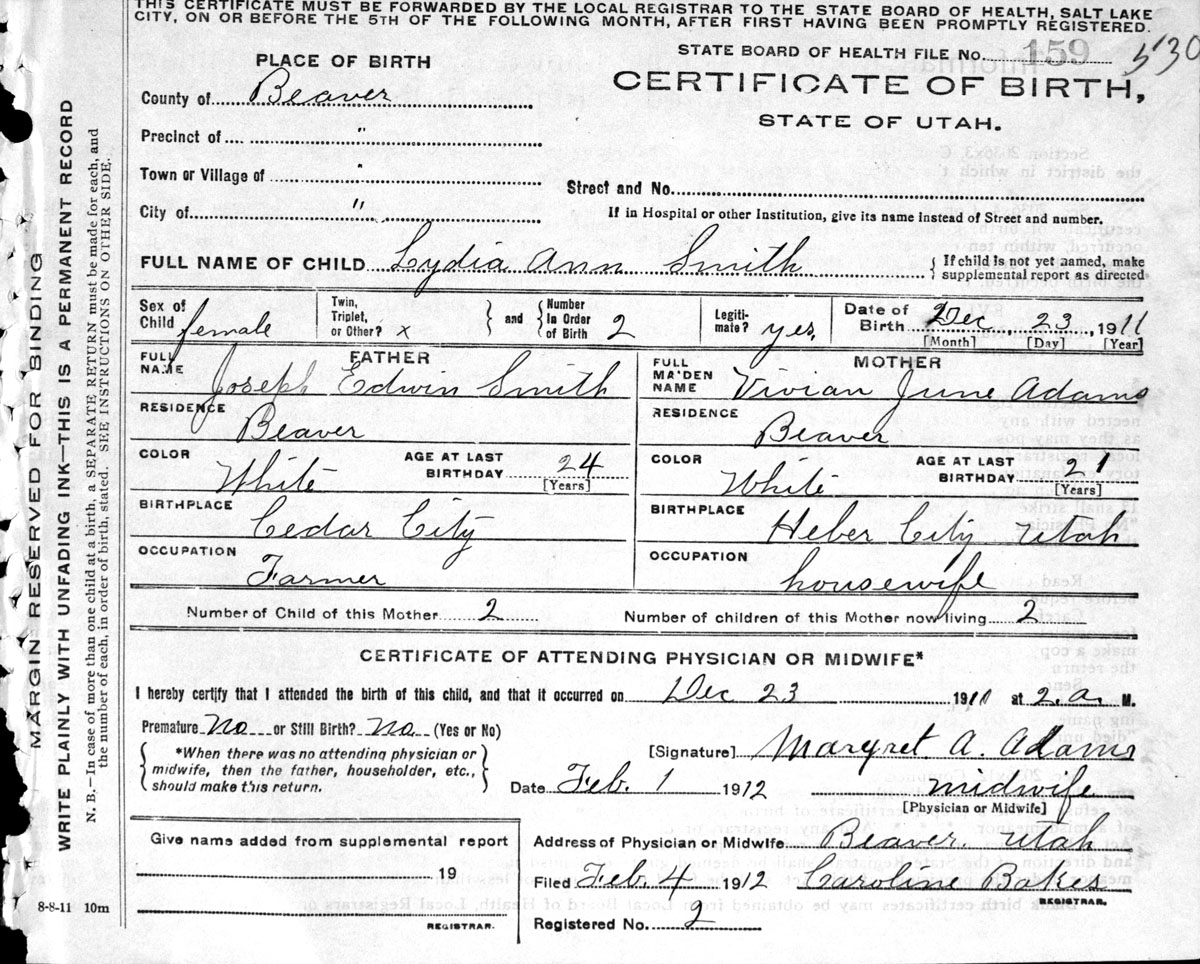 THIS CERTIFICATE MUST BE FORWARDED BY THE LOCAL REGISTRAR TO THE STATE BOARD OF HEALTH, SALT LAKE
CITY, ON OR BEFORE THE 5TH OF THE FOLLOWING MONTH, AFTER FIRST HAVING BEEN PROMPTLY REGISTERED.
STATE BOARD OF HEALTH FILE No. 159 530
PLACE OF BIRTH
CERTIFICATE OF BIRTH,
STATE OF UTAH.
County of Beaver
Precinct of "
Town or Village of "
Street and No.
City of "
If in Hospital or other Institution, give its name instead of Street and number.
FULL NAME OF CHILD Lydia Ann Smith { If child is not yet named, make
supplemental report as directed
Sex of Child female
Twin, Triplet, or Other? x } and { Number In Order of Birth 2
Legiti-mate? yes,
Date of Birth Dec 23, 1911
[Month] [Day] [Year]
FATHER
FULL NAME Joseph Edwin Smith
RESIDENCE Beaver
COLOR White AGE AT LAST BIRTHDAY 24
[Years]
BIRTHPLACE Cedar City
OCCUPATION Farmer
MOTHER
FULL MAIDEN NAME Vivian June Adams
RESIDENCE Beaver
COLOR White AGE AT LAST BIRTHDAY 21
[Years]
BIRTHPLACE Heber City Utah
OCCUPATION housewife
Number of Child of this Mother 2 Number of children of this Mother now living 2
CERTIFICATE OF ATTENDING PHYSICIAN OR MIDWIFE*
I hereby certify that I attended the birth of this child, and that it occurred on Dec 23 1911 at 2. a. M.
Premature No or Still Birth? No (Yes or No)
{ *When there was no attending physician or
midwife, then the father, householder, etc.,
should make this return. }
[Signature] Margret A. Adams
Date Feb. 1 1912 midwife
[Physician or Midwife]
Give name added from supplemental report
19
REGISTRAR.
Address of Physician or Midwife Beaver. Utah
Filed Feb. 4 1912 Caroline Bakes
REGISTRAR.
Registered No. 2
8-8-11 10m
MARGIN RESERVED FOR BINDING
WRITE PLAINLY WITH UNFADING INK—THIS IS A PERMANENT RECORD
N. B.—In case of more than one child at a birth, a SEPARATE RETURN must be made for each, and
the number of each, in order of birth, stated. SEE INSTRUCTIONS ON OTHER SIDE.